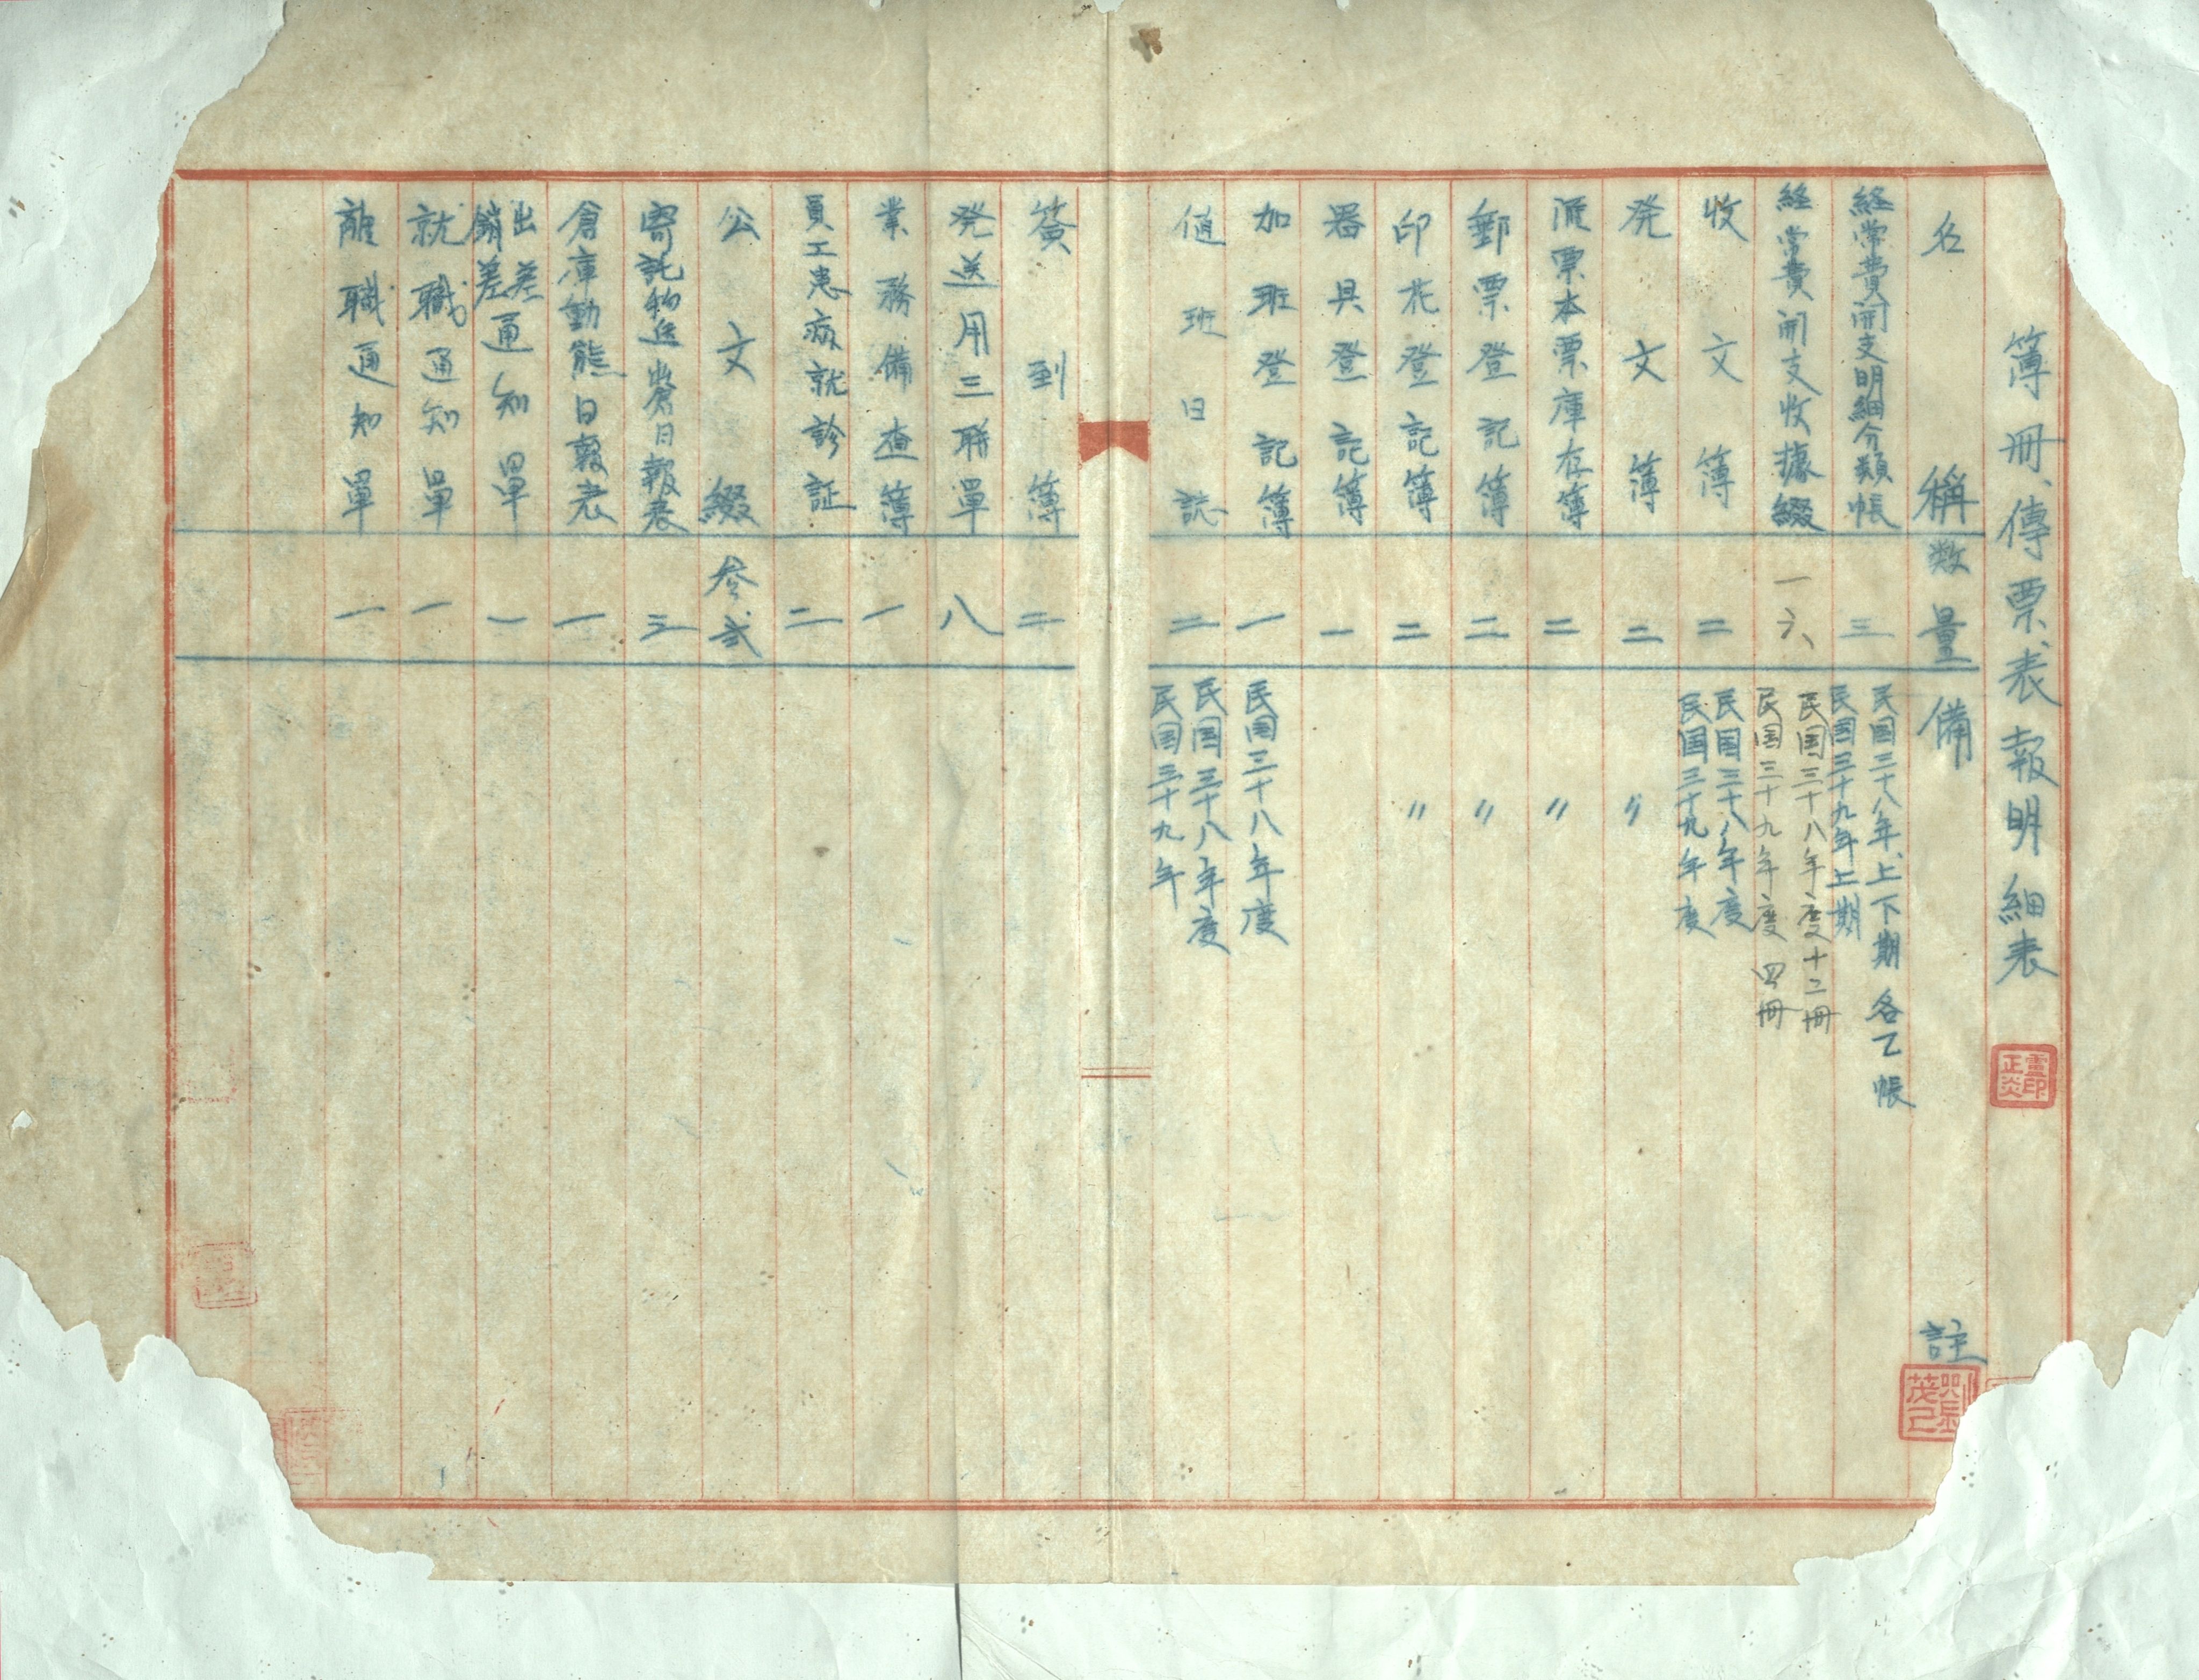 簿冊、傳票、表報明細表
名稱 数量 備註
経常費開支明細分類帳 三 民国三十八年上、下期各乙帳
民国三十九年上期
経常費開支收據綴 一六 民国三十八年度十二冊
民国三十九年度四冊
收文簿 二 民国三十八年度
民国三十九年度
発文簿 二 〃
派票本票庫存簿 二 〃
郵票登記簿 二 〃
印花登記簿 二 〃
器具登記簿 一
加班登記簿 一 民国三十八年度
値班日誌 二 民国三十八年度
民国三十九年
簽到簿 二
発送用三聯單 八
業務備查簿 一
員工患病就診証 二
公文綴 参弍
寄託物進出倉日報表 三
倉庫動態日報表 一
出差
銷差通知單 一
就職通知單 一
離職通知單 一